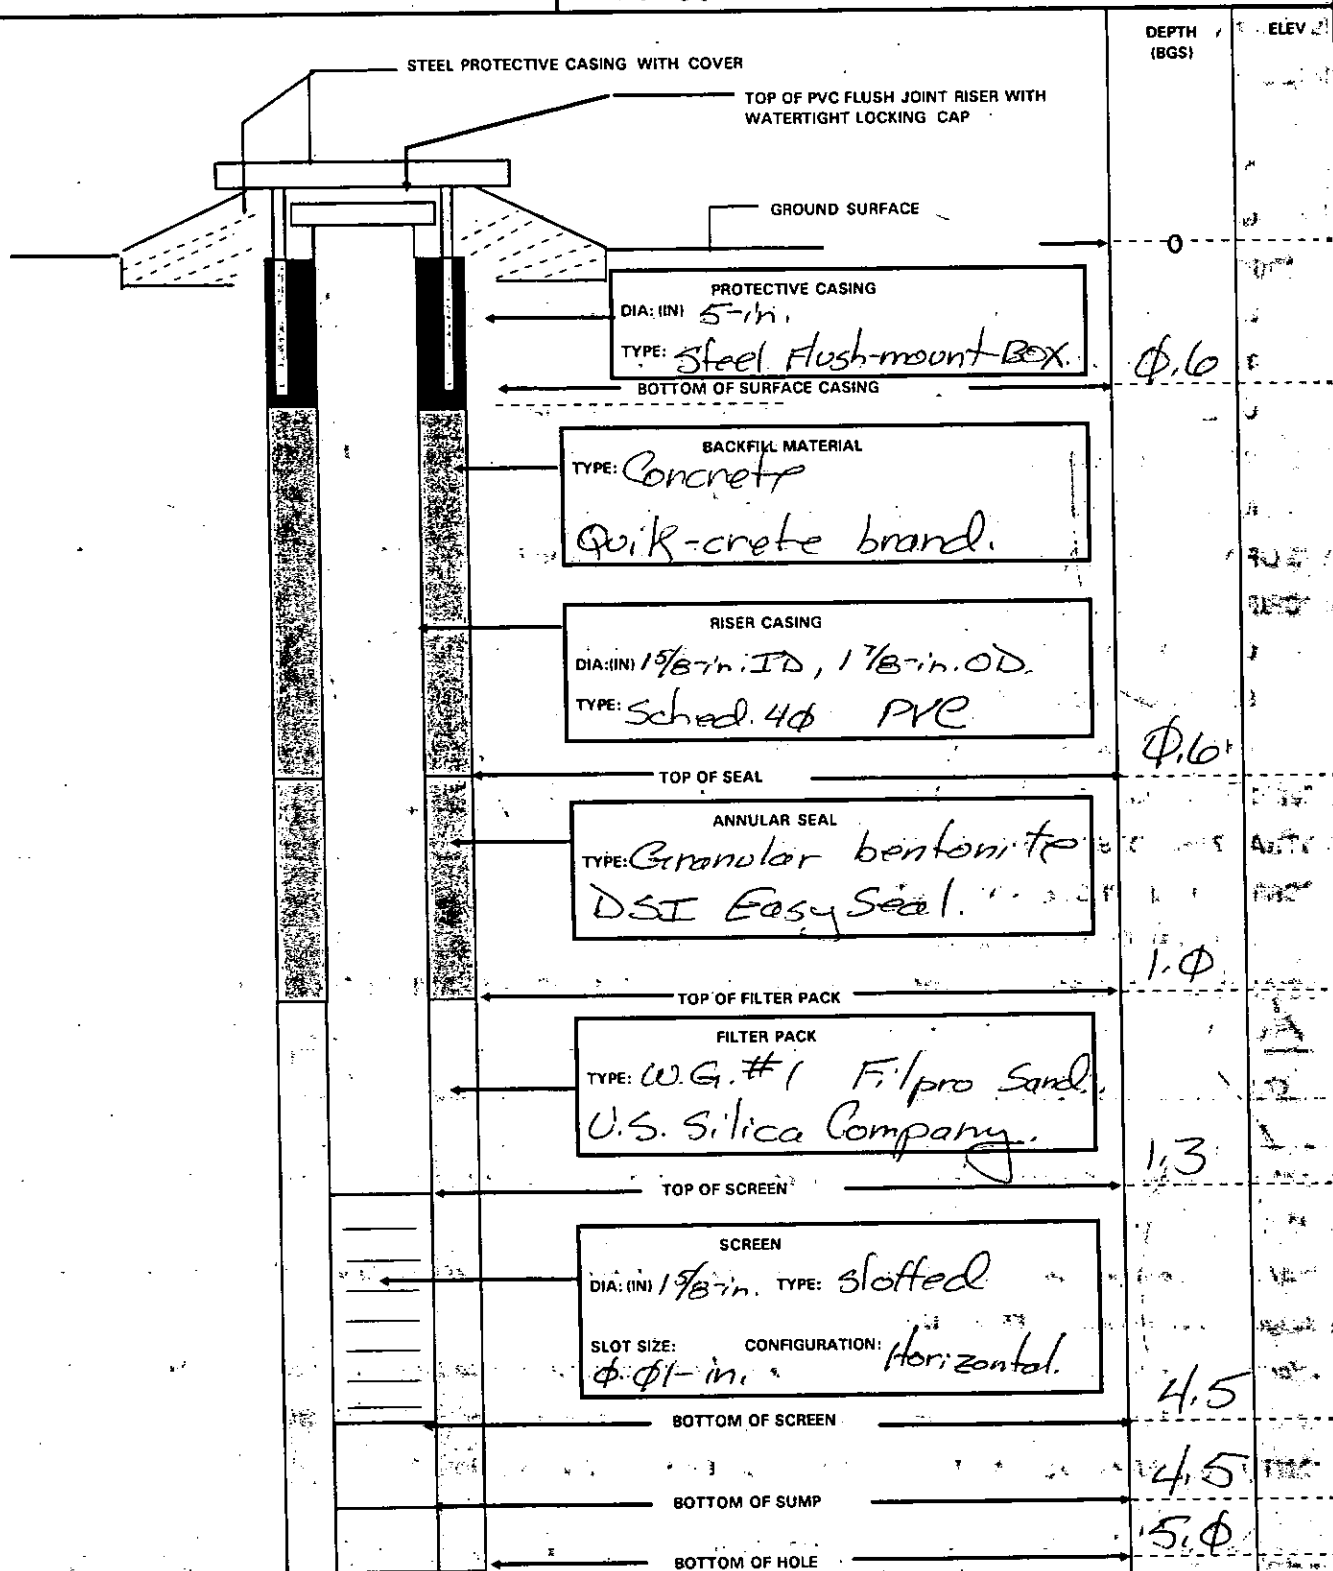 DEPTH
(BGS)
ELEV
STEEL PROTECTIVE CASING WITH COVER
TOP OF PVC FLUSH JOINT RISER WITH
WATERTIGHT LOCKING CAP
GROUND SURFACE
0
PROTECTIVE CASING
DIA: (IN) 5-in.
TYPE: Steel Flush-mount-BOX.
0.6
BOTTOM OF SURFACE CASING
BACKFILL MATERIAL
TYPE: Concrete
Quik-crete brand.
RISER CASING
DIA:(IN) 1 5/8-in. ID, 1 7/8-in. OD.
TYPE: Sched. 40 PVC
0.6
TOP OF SEAL
ANNULAR SEAL
TYPE: Granular bentonite
DSI Easy Seal.
1.0
TOP OF FILTER PACK
FILTER PACK
TYPE: W.G. #1 Filpro Sand.
U.S. Silica Company.
1.3
TOP OF SCREEN
SCREEN
DIA: (IN) 1 5/8-in. TYPE: slotted
SLOT SIZE: CONFIGURATION: Horizontal.
0.01-in.
4.5
BOTTOM OF SCREEN
4.5
BOTTOM OF SUMP
5.0
BOTTOM OF HOLE